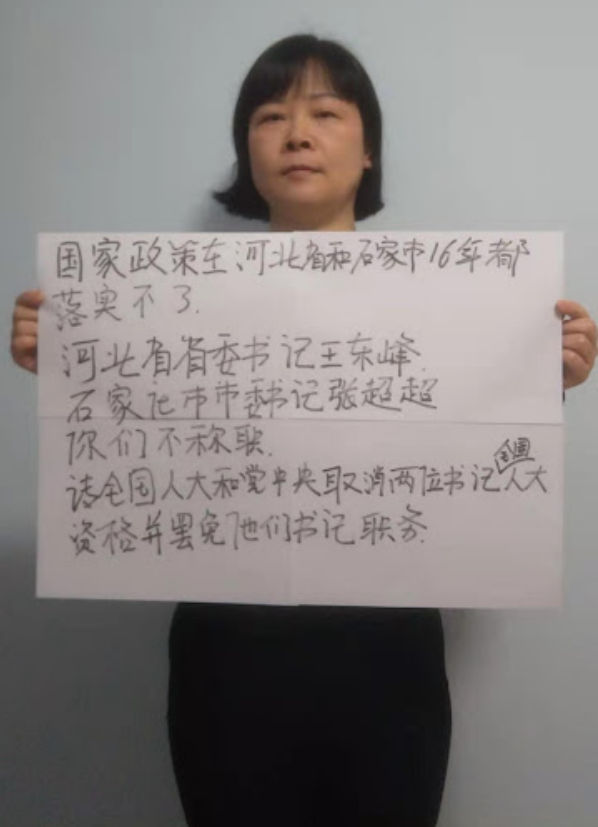 国家政策在河北省和石家市16年都
落实不了.
河北省省委书记王东峰.
石家庄市市委书记张超超
你们不称职.
请全国人大和党中央取消两位书记全国人大
资格并罢免他们书记职务.